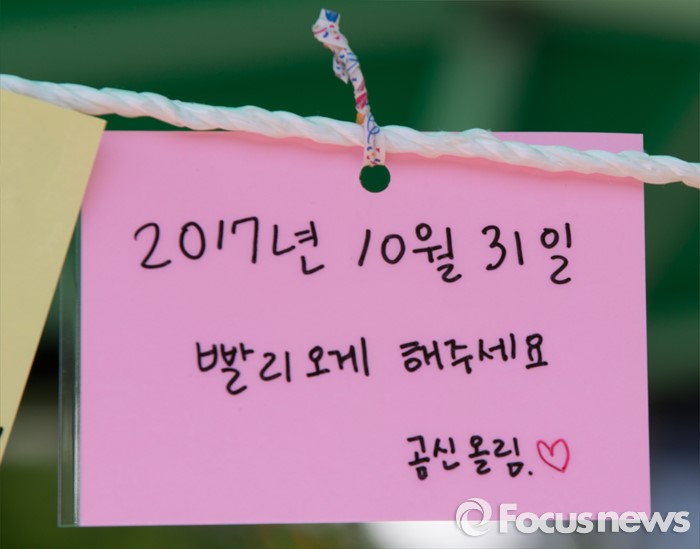 2017년 10월 31일
빨리오게 해주세요
곰신올림.♡
Focusnews